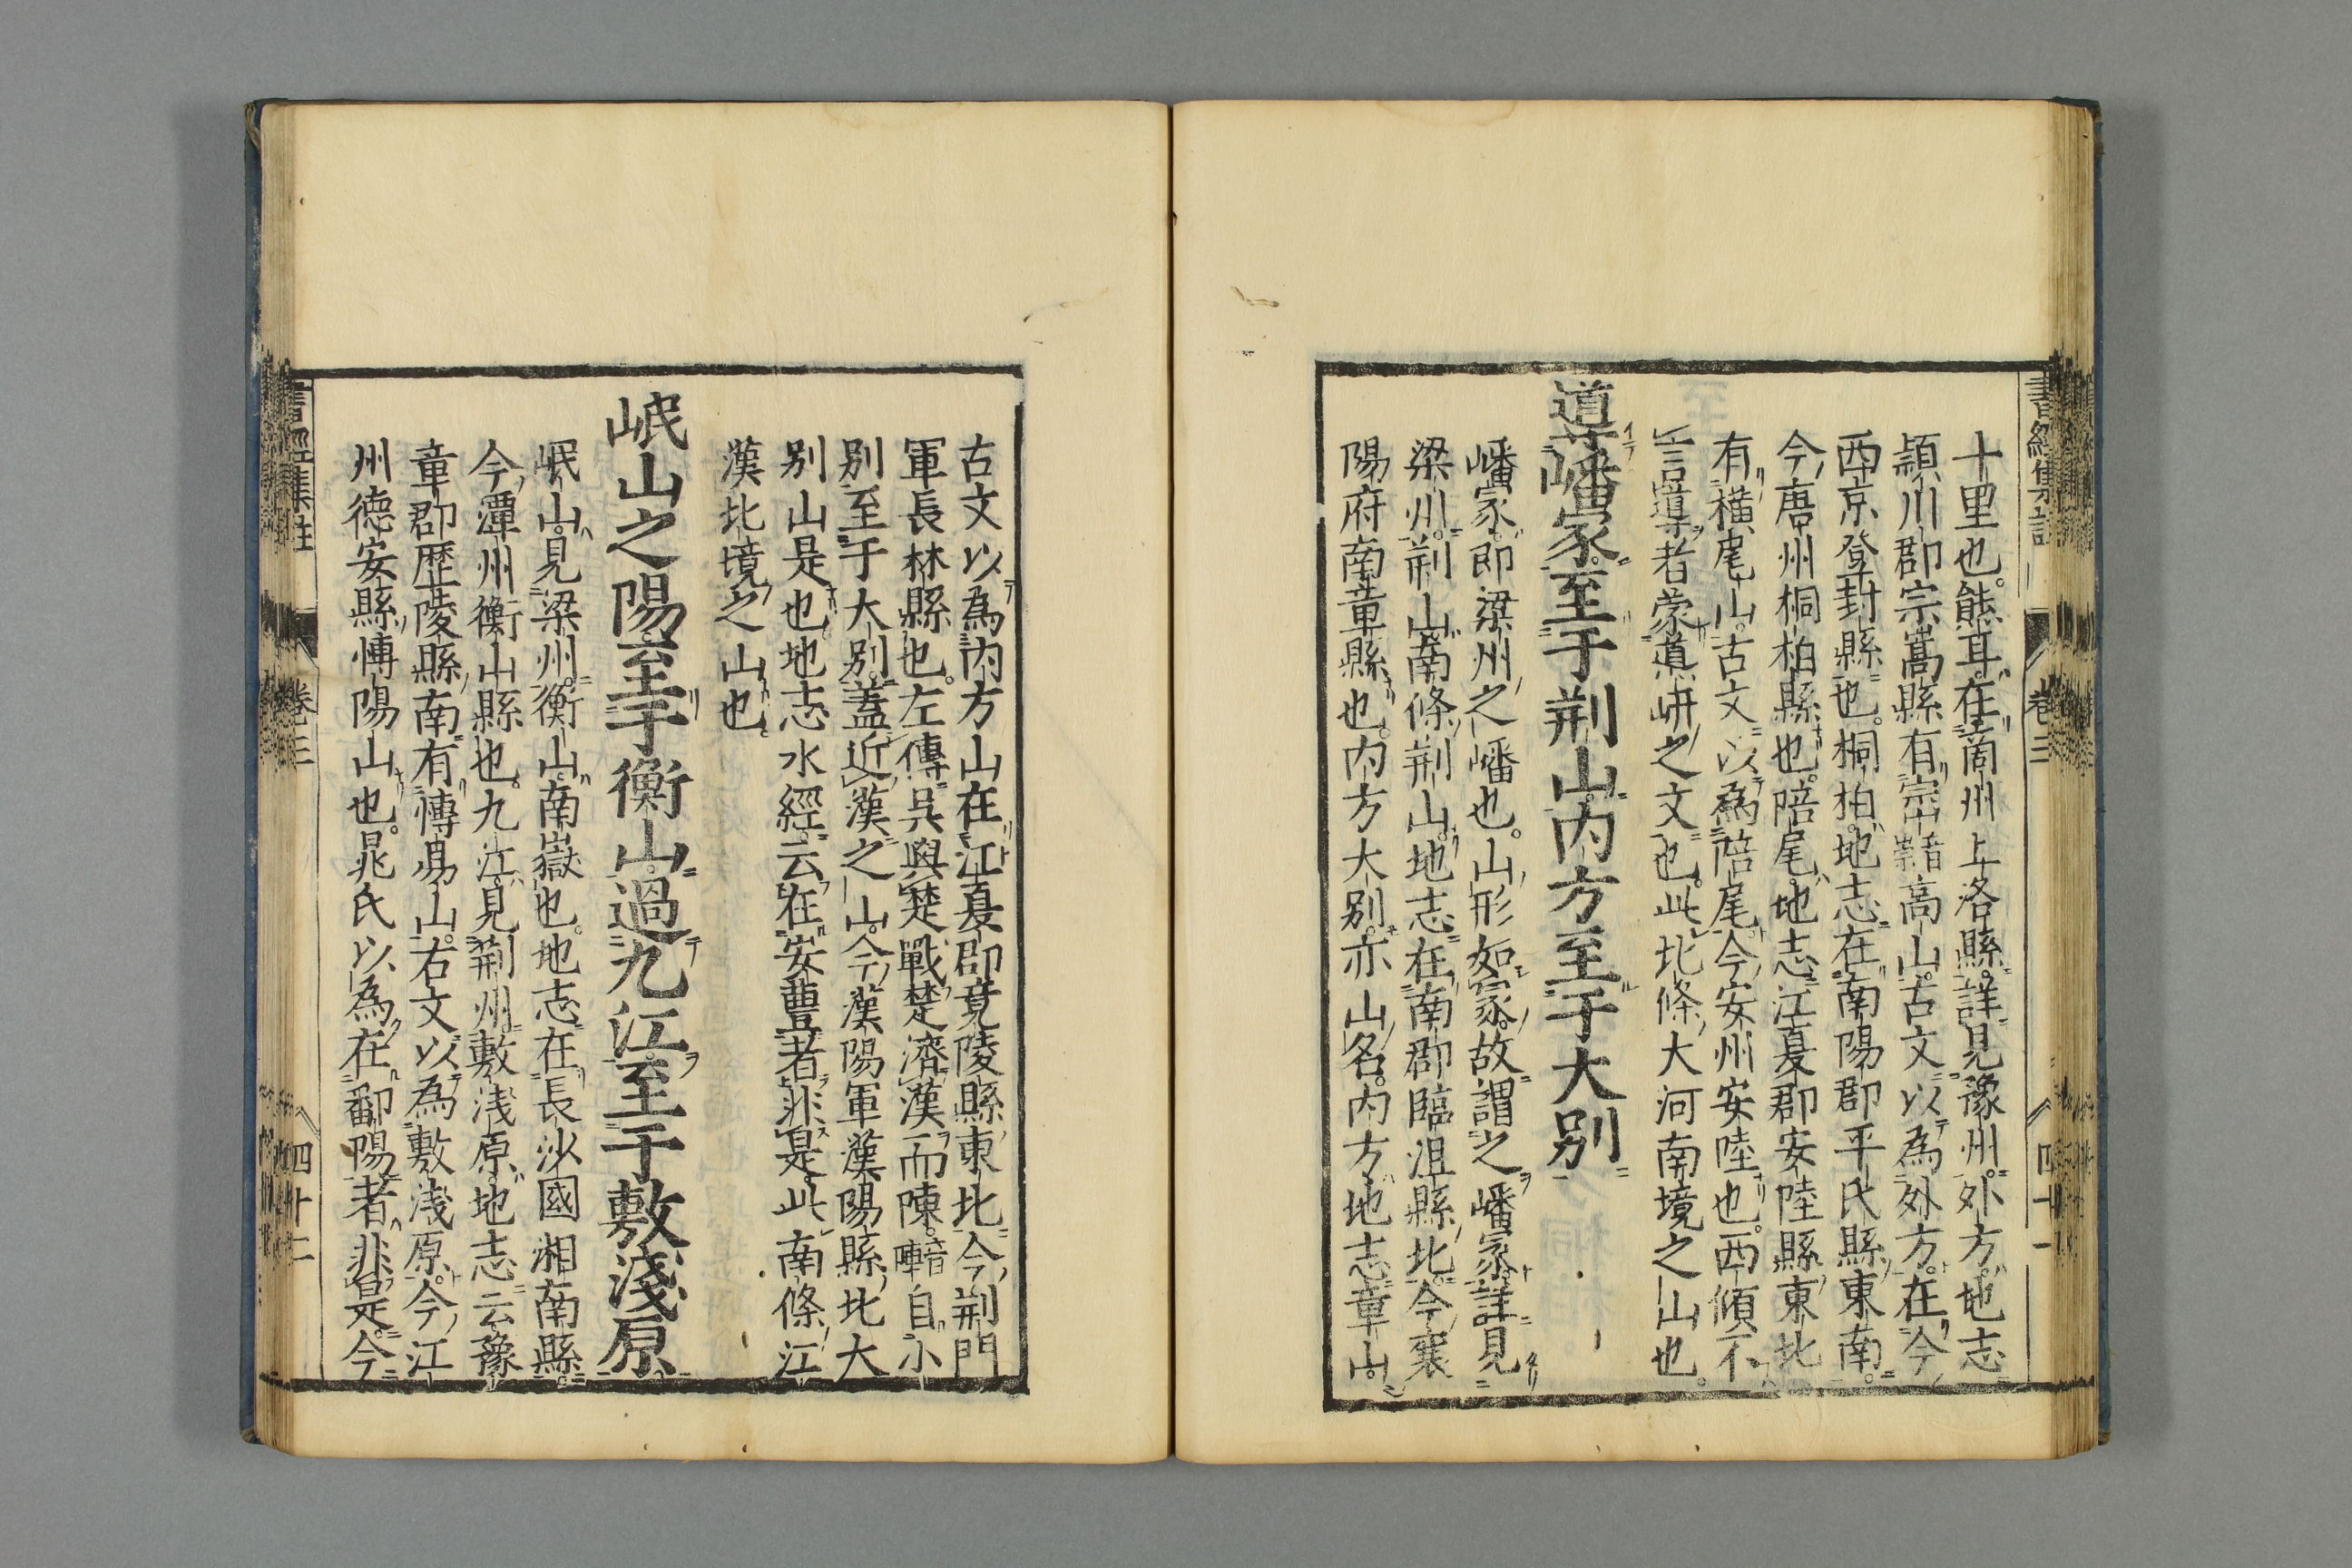 書經集註 卷三 四十一
十里也。熊耳。在商州上洛縣。詳見豫州。外方。地志
頴川郡宗嵩縣有宗嵩音高山。古文以爲外方。在今
西京登封縣也。桐柏。地志在南陽郡平氏縣東南。
今唐州桐柏縣也。陪尾。地志江夏郡安陸縣東北
有橫尾山。古文以爲陪尾。今安州安陸也。西傾不
言導者蒙導岍之文也。此北條大河南境之山也。
導嶓冢至于荆山内方至于大别
嶓冢。即梁州之嶓也。山形如冢。故謂之嶓冢。詳見
梁州。荆山。南條荆山。地志在南郡臨沮縣北。今襄
陽府南章縣也。内方大别。亦山名。内方。地志章山。
古文以爲内方山在江夏郡竟陵縣東北。今荆門
軍長林縣也。左傳吳與楚戰。楚濟漢而陳。音陣自小
别至于大别。蓋近漢之山。今漢陽軍漢陽縣北大
别山是也。地志水經云在安豐者非是。此南條江
漢北境之山也
岷山之陽至于衡山過九江至于敷淺原
岷山。見梁州。衡山。南嶽也。地志在長沙國湘南縣。
今潭州衡山縣也。九江。見荆州。敷淺原。地志云豫
章郡歷陵縣南有博昜山。古文以爲敷淺原。今江
州德安縣博陽山也。晁氏以爲在鄱陽者非是。今
書經集註 卷三 四十二